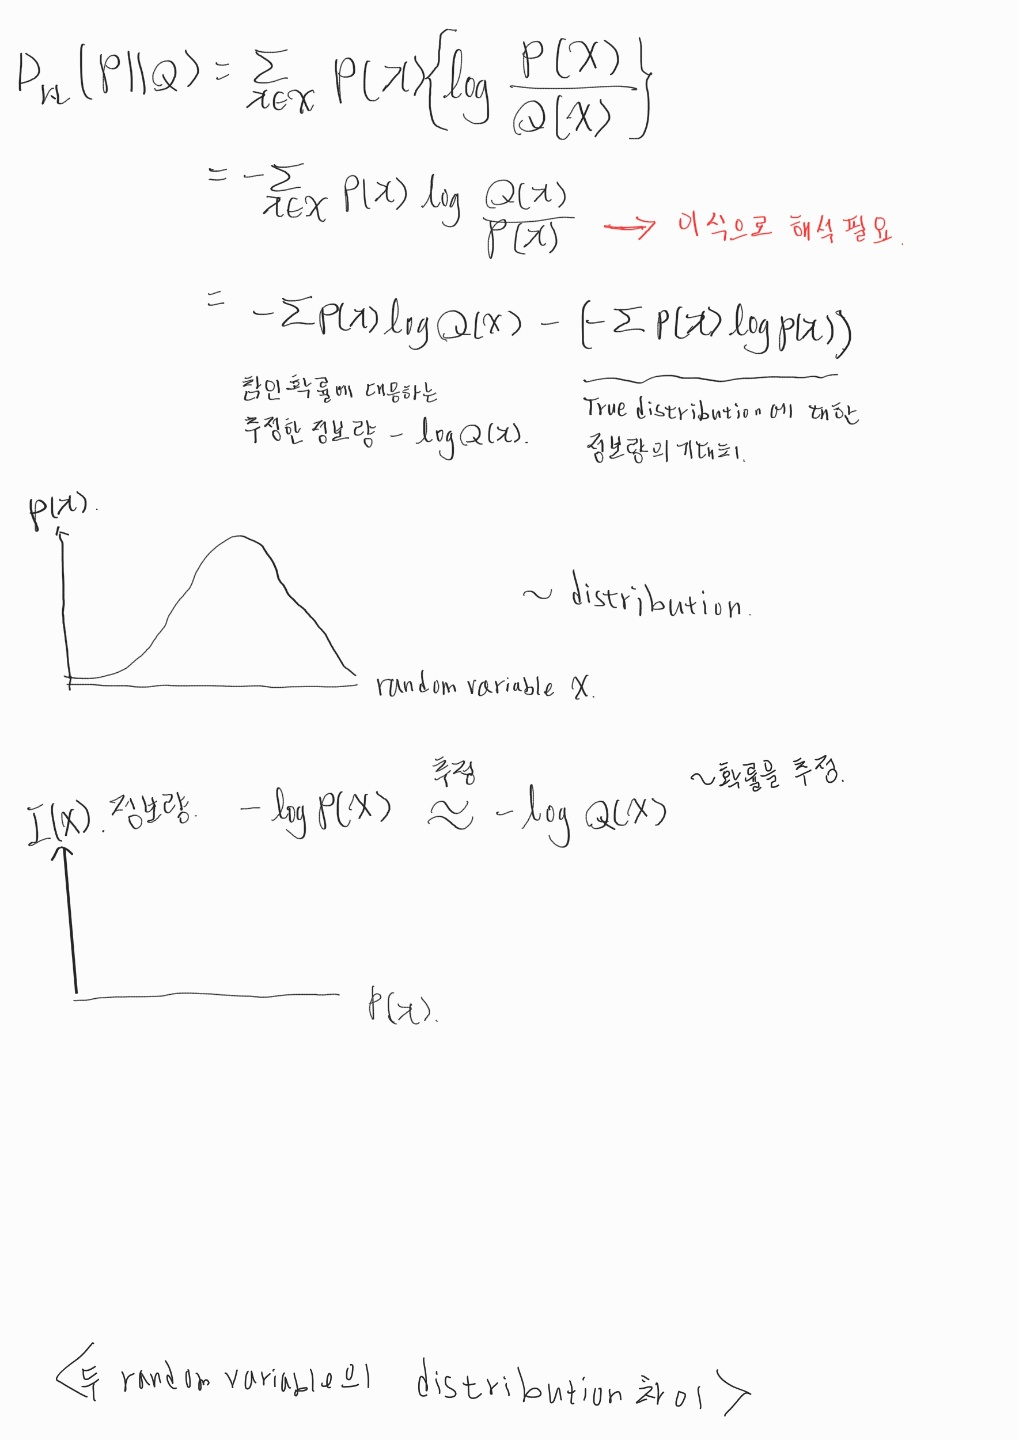 D_KL(P||Q) = Σ_{x∈X} P(x){log P(X)/Q(X)}
= -Σ_{x∈X} P(x) log Q(x)/P(x) → 이식으로 해석 필요.
= -ΣP(x)logQ(x) - (-ΣP(x)logp(x))
참인 확률에 대응하는
추정한 정보량 - logQ(x).
True distribution에 대한
정보량의 기대치.
P(x).
~ distribution.
random variable X.
I(X). 정보량. -logP(X) ≈ -log Q(X) ~확률을 추정.
추정
P(x).
<두 random variable의 distribution 차이>